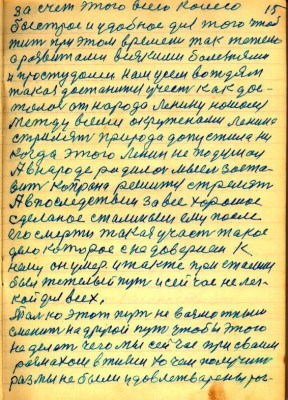 за счет этого всего колесо 15
быстрое и удобное для того чтоб
жит при этом времени так тежело
всякими болезнями
и простудами нам усем вождям
такая достанится участ как дос-
талос от народа Ленину
Между всеми окружениями Ленина
стрелят природа допустила ни
когда этого Ленин не подумал
А в народе родилос мысел заста-
вит решит стрелят
А впоследствии за все хорошое
сделаное сталиным ему после
его смерти такая участ такое
дело которое с не доверием к
нему он умер. и также при сталине
был тежелый пут и сей час не лег-
кой для всех.
Толко этот пут не
сменит на другой пут чтобы этого
не делат чего мы сей час при своим
размахом в жизни хочем получит
раз мы не были удовлетворены